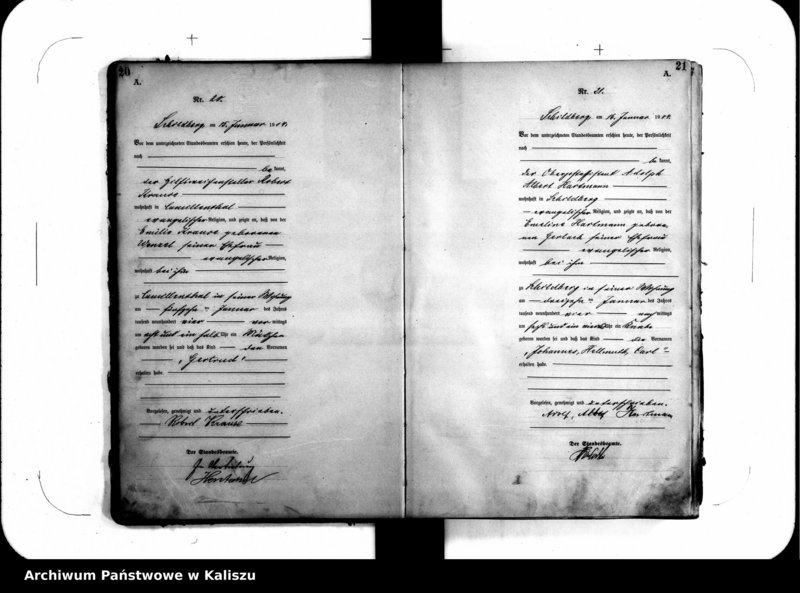 20
A.
Nr. 20.
Schildberg am 15. Januar 1904.
Vor dem unterzeichneten Standesbeamten erschien heute, der Persönlichkeit
nach
bekannt,
der Hilfsweichensteller Robert
Krause
wohnhaft in
evangelischer Religion, und zeigte an, daß von der
Emilie Krause geborenen
Wenzel seiner Ehefrau
evangelischer Religion,
wohnhaft bei ihm
zu in seiner Wohnung
am Januar des Jahres
tausend neunhundert vier vormittags
um acht und ein halb Uhr ein Mädchen
geboren worden sei und daß das Kind den Vornamen
„Gertrud“
erhalten habe.
Vorgelesen, genehmigt und unterschrieben.
Robert Krause
Der Standesbeamte.
In Vertretung
21
A.
Nr. 21.
Schildberg am 16. Januar 1904.
Vor dem unterzeichneten Standesbeamten erschien heute, der Persönlichkeit
nach
bekannt,
der Adolph
Albert Hartmann
wohnhaft in Schildberg
evangelischer Religion, und zeigte an, daß von der
Emeline Hartmann gebore-
nen Gerlach seiner Ehefrau
evangelischer Religion,
wohnhaft bei ihm
zu Schildberg in seiner Wohnung
am Januar des Jahres
tausend neunhundert vier nachmittags
um Uhr ein Knabe
geboren worden sei und daß das Kind die Vornamen
„Johannes, Hellmuth, Carl“
erhalten habe.
Vorgelesen, genehmigt und unterschrieben.
Adolf, Hartmann
Der Standesbeamte.
Archiwum Państwowe w Kaliszu